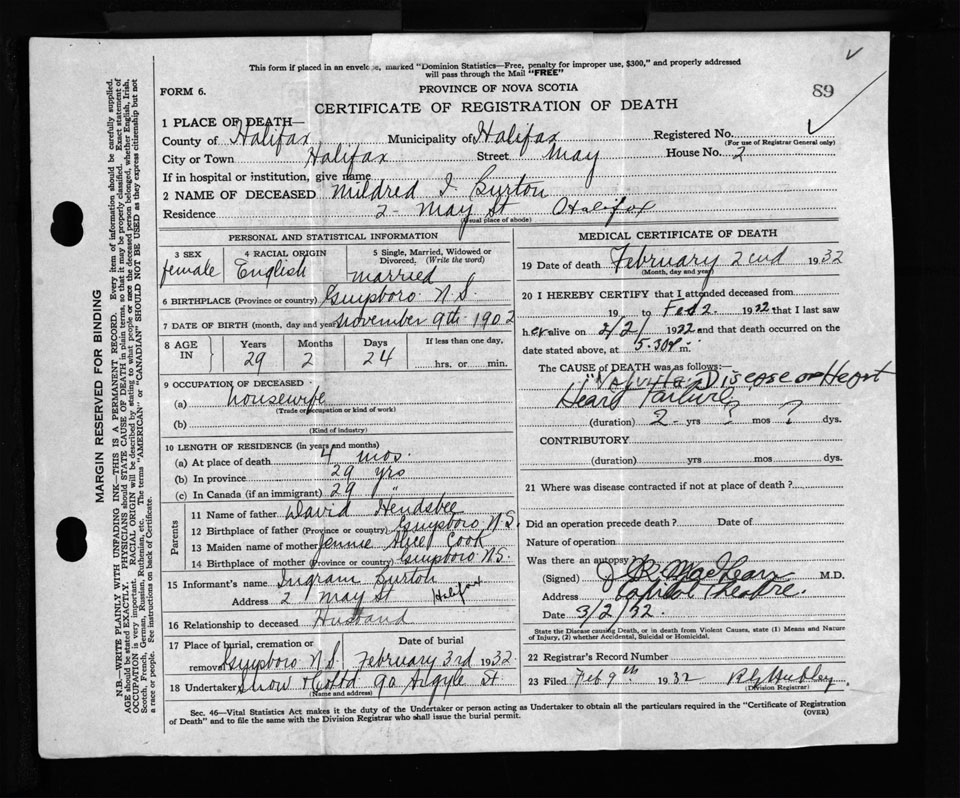 This form if placed in an envelope, marked "Dominion Statistics—Free, penalty for improper use, $300," and properly addressed
will pass through the Mail "FREE"
FORM 6.
PROVINCE OF NOVA SCOTIA
89
CERTIFICATE OF REGISTRATION OF DEATH
1 PLACE OF DEATH—
County of Halifax Municipality of Halifax Registered No.
(For use of Registrar General only)
City or Town Halifax Street May House No. 2
If in hospital or institution, give name
2 NAME OF DECEASED Mildred I Burton
Residence 2 - May St Halifax
(usual place of abode)
PERSONAL AND STATISTICAL INFORMATION
3 SEX 4 RACIAL ORIGIN 5 Single, Married, Widowed or
Divorced. (Write the word)
female English married
6 BIRTHPLACE (Province or country) Guysboro N.S.
7 DATE OF BIRTH (month, day and year) November 9th 1902
8 AGE IN Years Months Days If less than one day,
29 2 24 hrs. or min.
9 OCCUPATION OF DECEASED
(a) housewife
(Trade or occupation or kind of work)
(b)
(Kind of industry)
10 LENGTH OF RESIDENCE (in years and months)
(a) At place of death 4 mos.
(b) In province 29 yrs
(c) In Canada (if an immigrant) 29 "
Parents
11 Name of father David Hendsbee
12 Birthplace of father (Province or country) Guysboro N.S.
13 Maiden name of mother Jennie Alice Cook
14 Birthplace of mother (Province or country) Guysboro N.S.
15 Informant's name Ingram Burton
Address 2 May St Halifax
16 Relationship to deceased Husband
17 Place of burial, cremation or Date of burial
removal Guysboro N.S. February 3rd 1932
18 Undertaker Snow & Co Ltd 90 Argyle St
(Name and address)
MEDICAL CERTIFICATE OF DEATH
19 Date of death February 2nd 1932
(Month, day and year)
20 I HEREBY CERTIFY that I attended deceased from
19 to Feb 2 1932 that I last saw
her alive on 2/2/ 1932 and that death occurred on the
date stated above, at 5.30 P m.
The CAUSE of DEATH was as follows:—
Valvular Disease of Heart
Heart Failure
(duration) 2 - yrs ? mos ? dys.
CONTRIBUTORY
(duration) yrs mos dys.
21 Where was disease contracted if not at place of death?
Did an operation precede death? Date of
Nature of operation
Was there an autopsy
(Signed) M.D.
Address Capitol Theatre.
Date 3/2/32.
State the Disease causing Death, or in death from Violent Causes, state (1) Means and Nature
of Injury, (2) whether Accidental, Suicidal or Homicidal.
22 Registrar's Record Number
23 Filed Feb 9th 1932
(Division Registrar)
Sec. 46—Vital Statistics Act makes it the duty of the Undertaker or person acting as Undertaker to obtain all the particulars required in the "Certificate of Registration
of Death" and to file the same with the Division Registrar who shall issue the burial permit. (OVER)
MARGIN RESERVED FOR BINDING
N.B.—WRITE PLAINLY WITH UNFADING INK—THIS IS A PERMANENT RECORD. Every item of information should be carefully supplied.
AGE should be stated EXACTLY. PHYSICIANS should STATE CAUSE OF DEATH in plain terms, so that it may be properly classified. Exact statement of
OCCUPATION is very important. RACIAL ORIGIN will be described by stating to what people or race the deceased person belonged, whether English, Irish,
Scotch, French, German, Russian, Ruthenian, etc. The terms "AMERICAN" or "CANADIAN" SHOULD NOT BE USED as they express citizenship but not
a race or people. See instructions on back of Certificate.